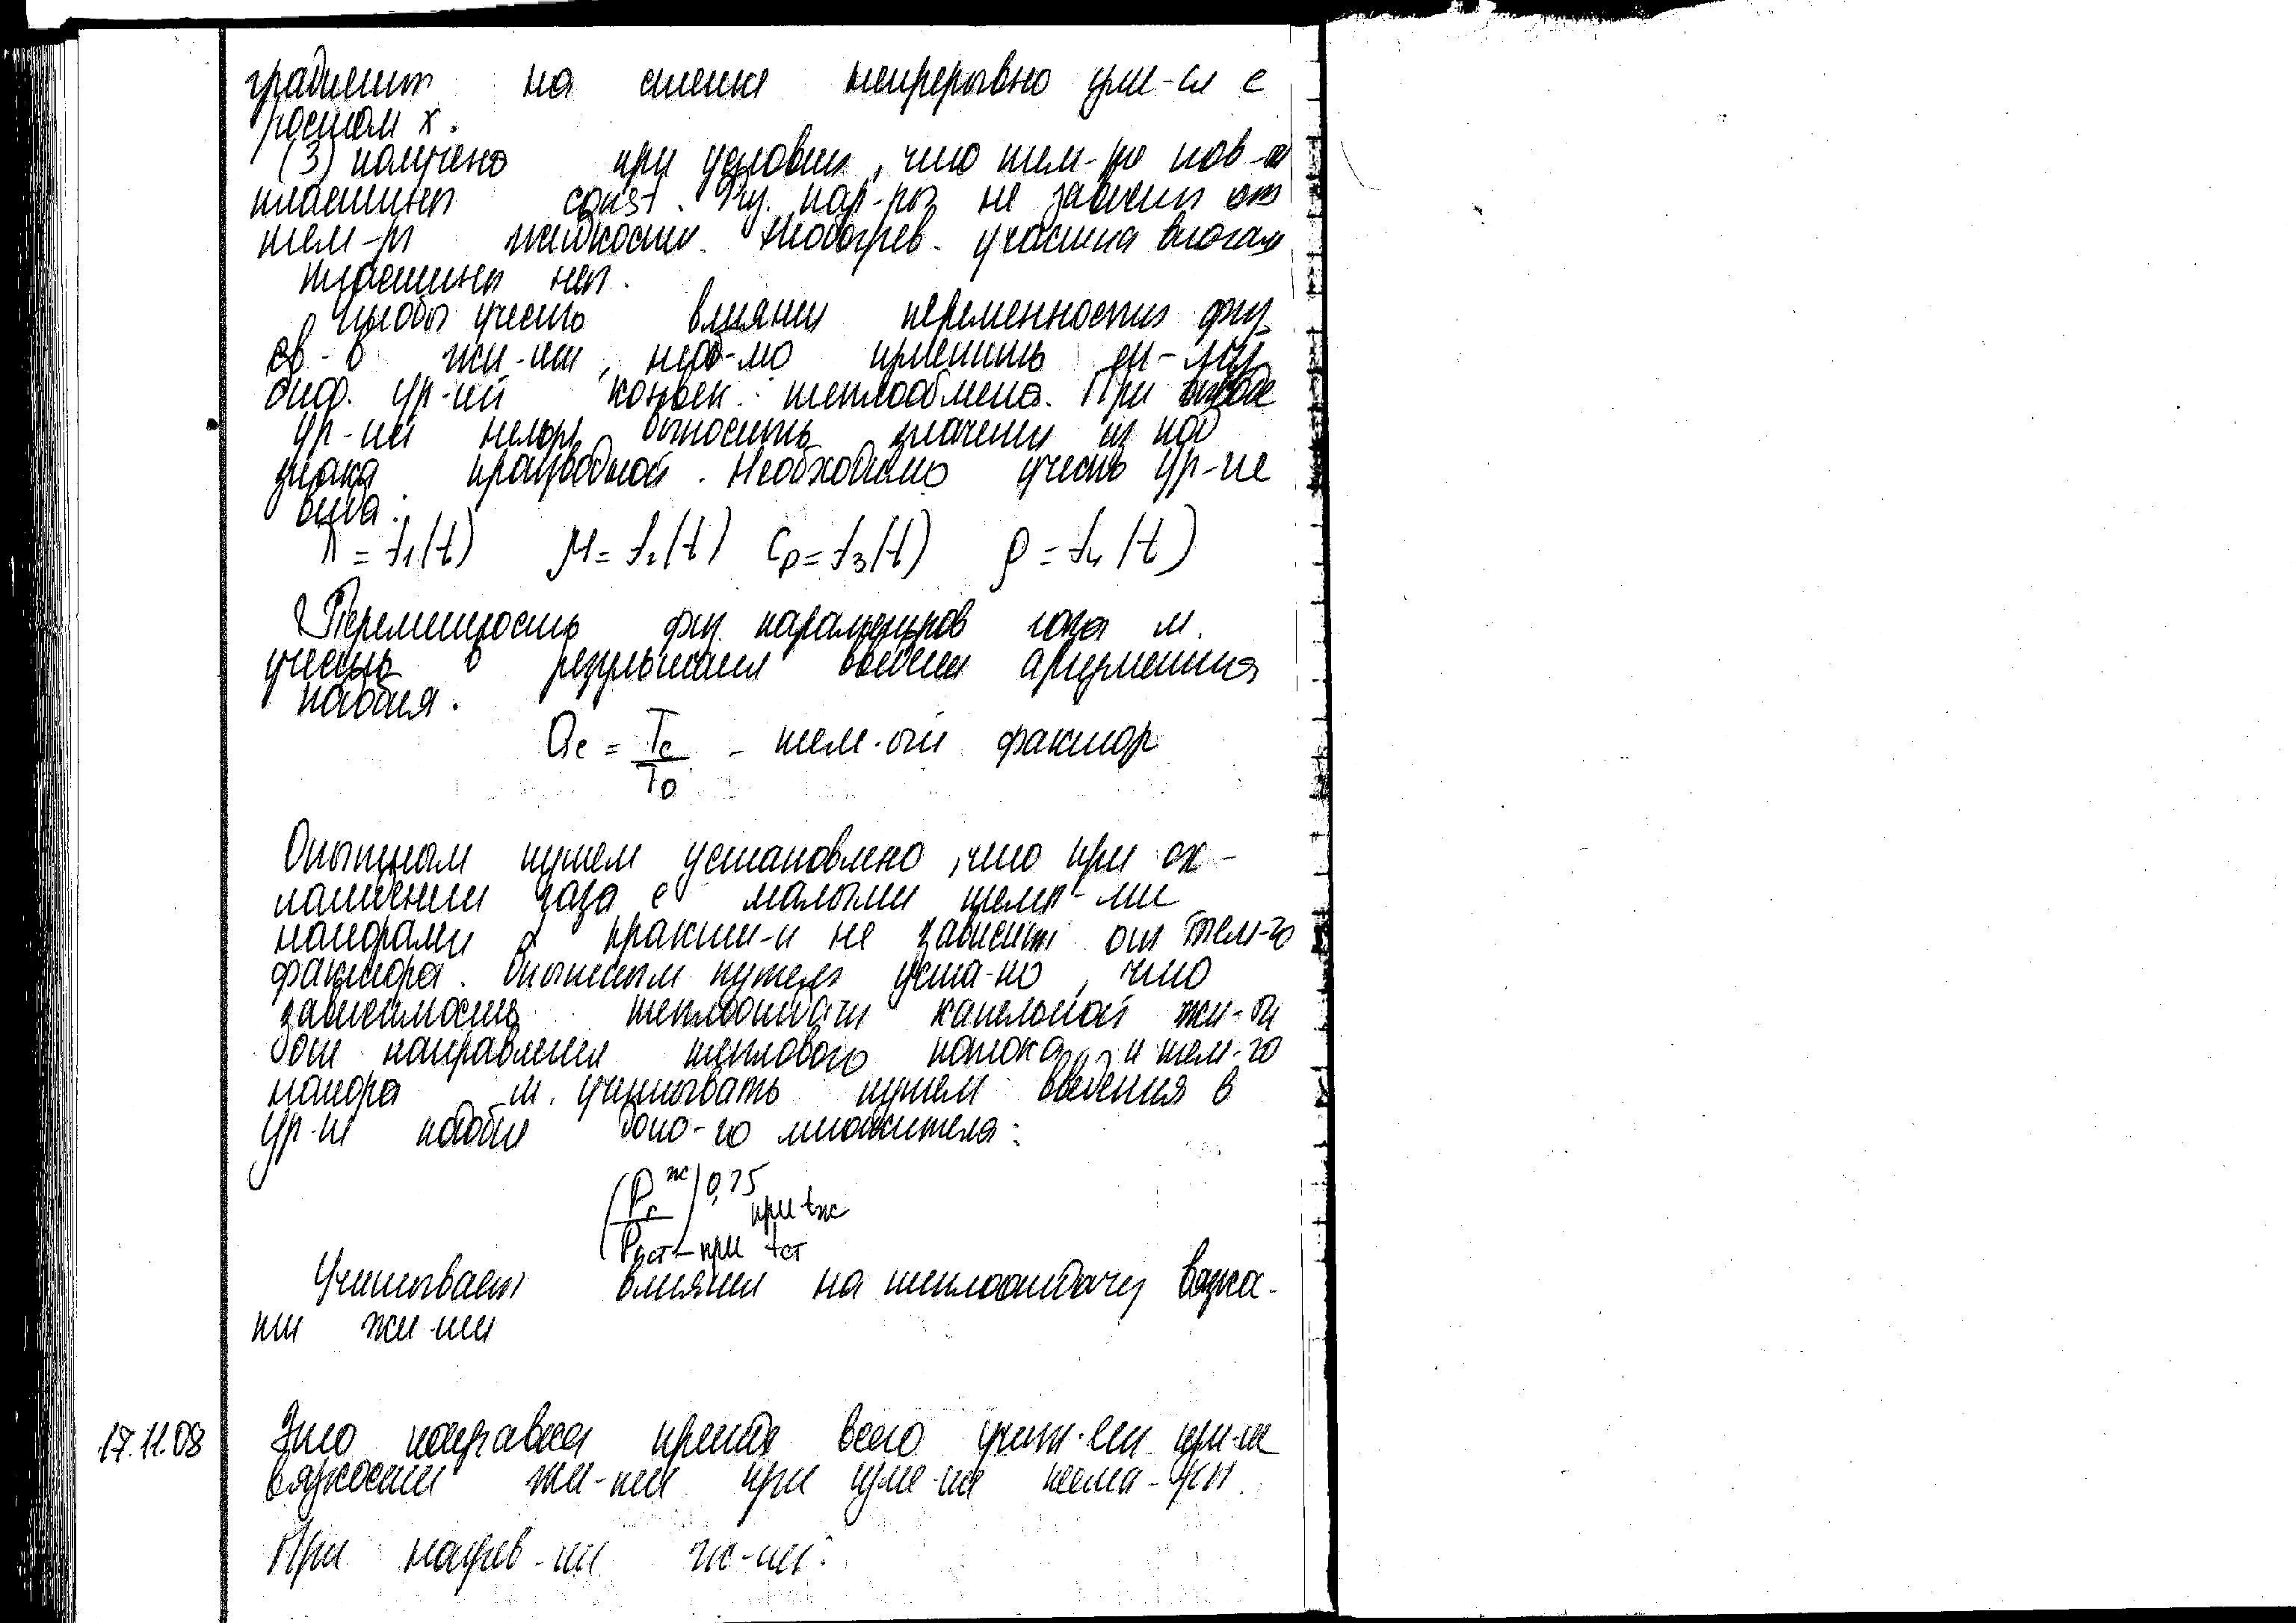 градиент на стенке непрерывно ум-ся с
ростом x.
(3) получено при условии, что тем-ра пов-и
пластины const. Физ. пар-ры не зависят от
тем-ры жидкости. Необогрев. участка вначале
пластины нет.
Чтобы учесть влияние переменности физ.
св-в жи-ти, необ-мо применить си-му
диф. ур-ий конвек. теплообмена. При выводе
ур-ий нельзя выносить значения из под
знака производной. Необходимо учесть ур-ие
вида:
λ = f₁(t) μ = f₂(t) Cp = f₃(t) ρ = f₄(t)
Переменность физ. параметров газа м.
учесть в результате введения аргумента
подобия.
Θc = Tc/T₀ – тем-ый фактор
Опытным путем установлено, что при об-
газа с малыми темп-ми
напорами α практи-и не зависит от тем-го
фактора. Опытным путем уста-но, что
зависимость теплоотдачи капельной жи-ти
от направления теплового потока и тем-го
напора м. учитывать путем введения в
ур-ие подобия допо-го множителя:
(Pr ж / Pr ст)^0,25 при tж
– при tст
Учитывает влияния на теплоотдачу вязко-
ти жи-ти
17.11.08 Эта поправка прежде всего учит-ет изм-ие
вязкости жи-ти при изме-ие темпа-ры.
При нагрев-ии ж-ти: